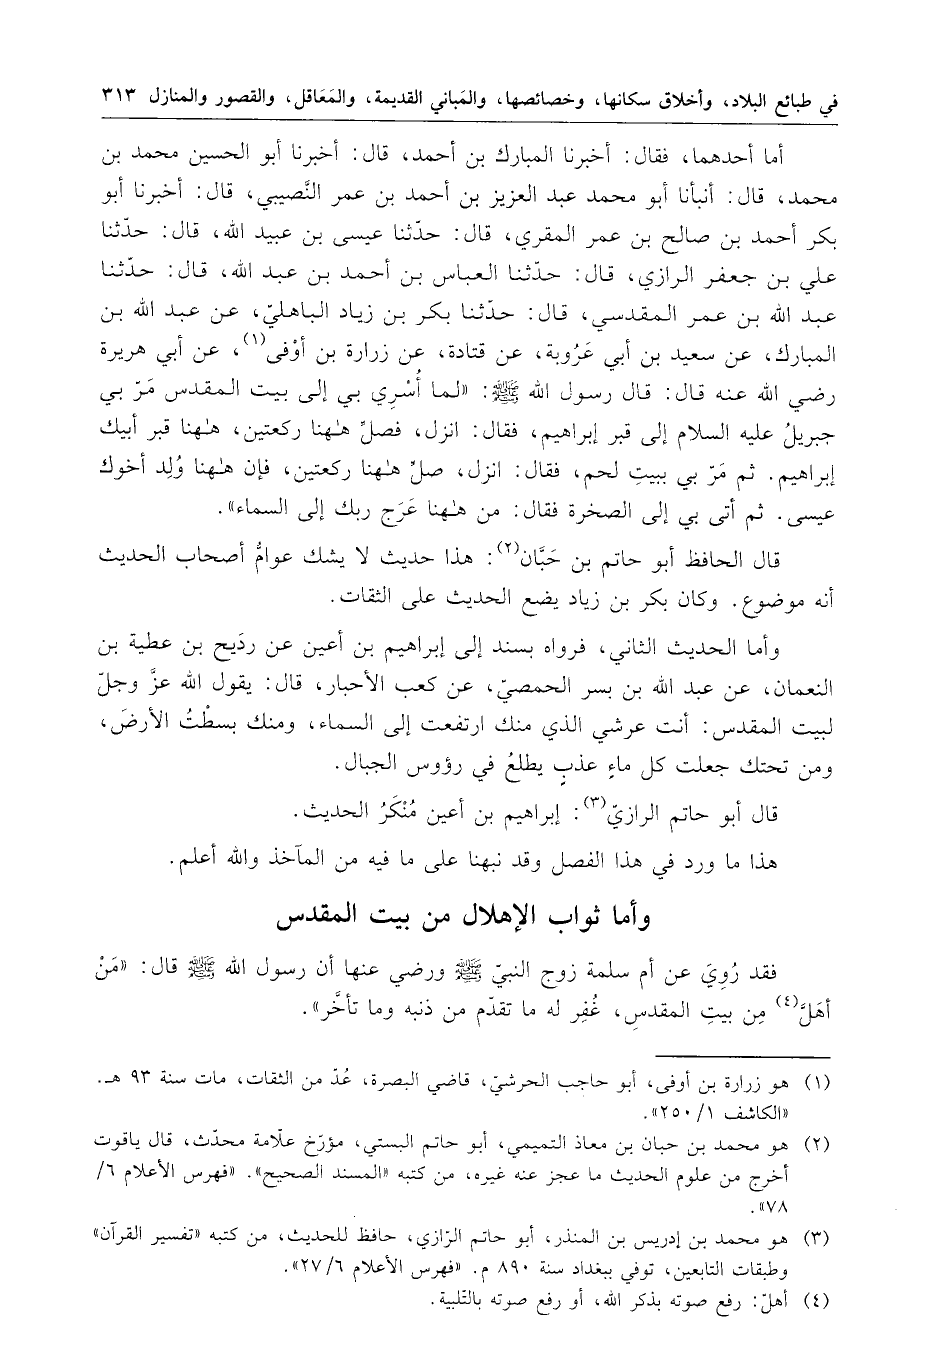 في طبائع البلاد، وأخلاق سكانها، وخصائصها، والمَباني القديمة، والمَعَاقل، والقصور والمنازل ٣١٣
أما أحدهما، فقال: أخبرنا المبارك بن أحمد، قال: أخبرنا أبو الحسين محمد بن
محمد، قال: أنبأنا أبو محمد عبد العزيز بن أحمد بن عمر النَّصيبي، قال: أخبرنا أبو
بكر أحمد بن صالح بن عمر المقري، قال: حدّثنا عيسى بن عبيد الله، قال: حدّثنا
علي بن جعفر الرازي، قال: حدّثنا العباس بن أحمد بن عبد الله، قال: حدّثنا
عبد الله بن عمر المقدسي، قال: حدّثنا بكر بن زياد الباهليّ، عن عبد الله بن
المبارك، عن سعيد بن أبي عَرُوبة، عن قتادة، عن زرارة بن أوْفى(١)، عن أبي هريرة
رضي الله عنه قال: قال رسول الله ﷺ: «لما أُسْرِي بي إلى بيت المقدس مَرّ بي
جبريلُ عليه السلام إلى قبر إبراهيم، فقال: انزل، فصلِّ هٰهنا ركعتين، هٰهنا قبر أبيك
إبراهيم. ثم مَرّ بي ببيتِ لحم، فقال: انزل، صلِّ هٰهنا ركعتين، فإن هٰهنا وُلِد أخوك
عيسى. ثم أتى بي إلى الصخرة فقال: من هٰهنا عَرَج ربك إلى السماء».
قال الحافظ أبو حاتم بن حَبَّان(٢): هذا حديث لا يشك عوامُّ أصحاب الحديث
أنه موضوع. وكان بكر بن زياد يضع الحديث على الثقات.
وأما الحديث الثاني، فرواه بسند إلى إبراهيم بن أعين عن رديَح بن عطية بن
النعمان، عن عبد الله بن بسر الحمصيّ، عن كعب الأحبار، قال: يقول الله عزَّ وجلّ
لبيت المقدس: أنت عرشي الذي منك ارتفعت إلى السماء، ومنك بسطْتُ الأرضَ،
ومن تحتك جعلت كل ماءٍ عذبٍ يطلعُ في رؤوس الجبال.
قال أبو حاتم الرازيّ(٣): إبراهيم بن أعين مُنْكَرُ الحديث.
هذا ما ورد في هذا الفصل وقد نبهنا على ما فيه من المآخذ والله أعلم.
وأما ثواب الإهلال من بيت المقدس
فقد رُوِيَ عن أم سلمة زوج النبيّ ﷺ ورضي عنها أن رسول الله ﷺ قال: «مَنْ
أهَلَّ(٤) مِن بيتِ المقدسِ، غُفِر له ما تقدّم من ذَنبه وما تأخَّر».
(١) هو زرارة بن أوفى، أبو حاجب الحرشيّ، قاضي البصرة، عُدّ من الثقات، مات سنة ٩٣ هـ.
«الكاشف ١/ ٢٥٠».
(٢) هو محمد بن حبان بن معاذ التميمي، أبو حاتم البستي، مؤرّخ علّامة محدّث، قال ياقوت
أخرج من علوم الحديث ما عجز عنه غيره، من كتبه «المسند الصحيح». «فهرس الأعلام ٦/
٧٨».
(٣) هو محمد بن إدريس بن المنذر، أبو حاتم الرّازي، حافظ للحديث، من كتبه «تفسير القرآن»
وطبقات التابعين، توفي ببغداد سنة ٨٩٠ م. «فهرس الأعلام ٢٧/٦».
(٤) أهلّ: رفع صوته بذكر الله، أو رفع صوته بالتّلبية.